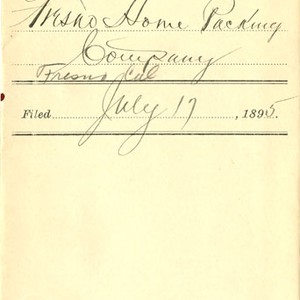 Fresno Home Packing
Company
Fresno Cal
Filed July 17, 1895.